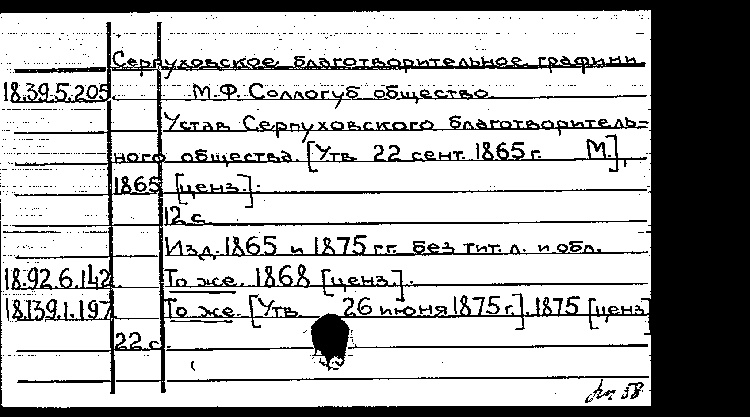 Серпуховское благотворительное графини
18.39.5.205. М.Ф. Соллогуб общество.
Устав Серпуховского благотворитель=
ного общества. [Утв. 22 сент. 1865 г. М.],
1865 [ценз.].
12 с.
Изд. 1865 и 1875 гг. без тит. л. и обл.
18.92.6.142. То же. 1868 [ценз.].
18.139.1.197. То же. [Утв. 26 июня 1875 г.]. 1875 [ценз
22 с.
58